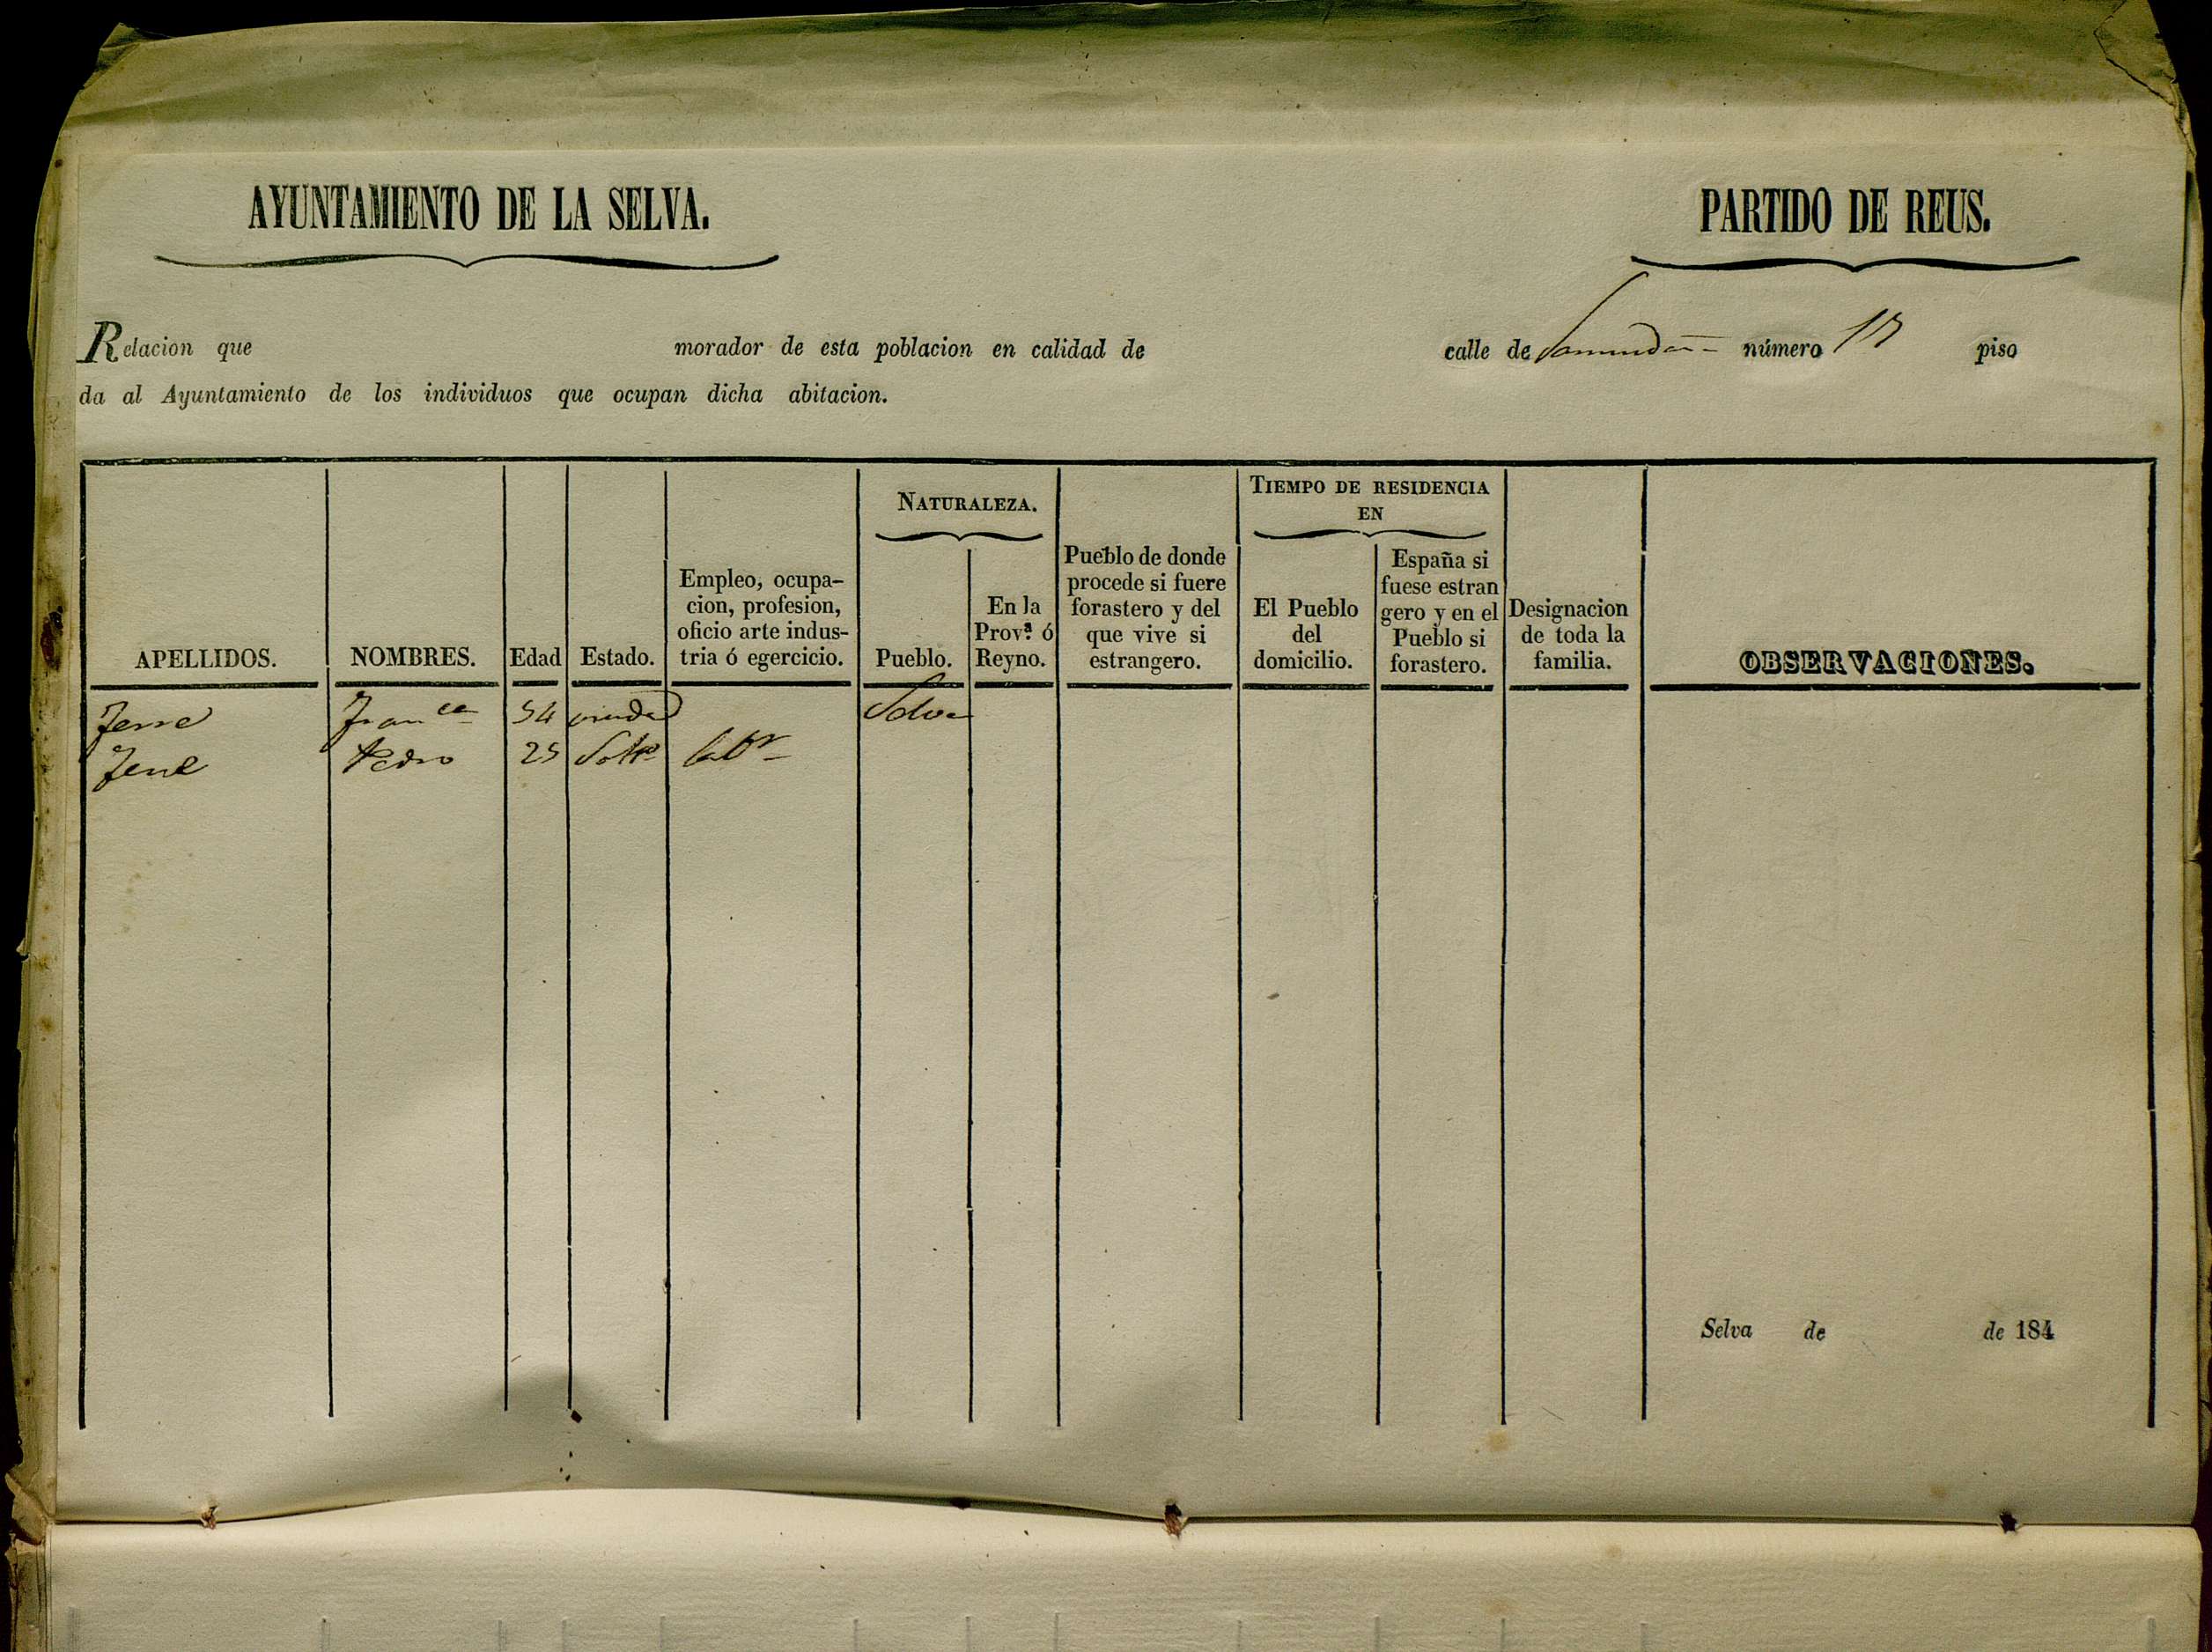 AYUNTAMIENTO DE LA SELVA.
PARTIDO DE REUS.
Relacion que morador de esta poblacion en calidad de calle de número 17 piso
da al Ayuntamiento de los individuos que ocupan dicha abitacion.
APELLIDOS.
NOMBRES.
Edad
Estado.
Empleo, ocupa-
cion, profesion,
oficio arte indus-
tria ó egercicio.
NATURALEZA.
Pueblo.
En la
Prov.ª ó
Reyno.
Pueblo de donde
procede si fuere
forastero y del
que vive si
estrangero.
TIEMPO DE RESIDENCIA
EN
El Pueblo
del
domicilio.
España si
fuese estran
gero y en el
Pueblo si
forastero.
Designacion
de toda la
familia.
OBSERVACIONES.
Franca 54 viuda Selva
Jene Pedro 25 Solto labr
Selva de de 184